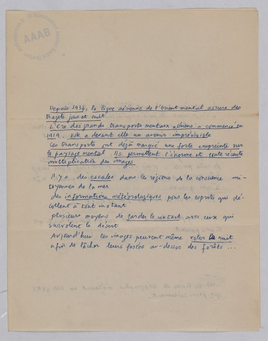 AAAB
Depuis 1924, la ligne aérienne de l'Orient mental assure des
trajets jour et nuit
L'ère des grands transports mentaux aériens a commencé en
1924. Elle a devant elle un avenir imprévisible
Ces transports ont déjà marqué une forte empreinte sur
le paysage mental. Ils permettent l'énorme et toute récente
multiplication des images.
Il y a des escales dans les régions de la conscience
de la mer
des informations météorologiques pour les esprits qui
décollent à cet instant
plusieurs moyens de garder le contact avec ceux qui
survolent le désert
Aujourd'hui les images peuvent même voler de nuit
afin de lâcher leurs fusées au-dessus des forêts ...